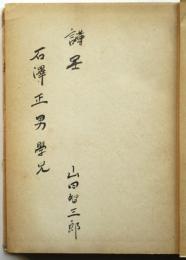 謹呈
石澤正男學兄
山田智三郎